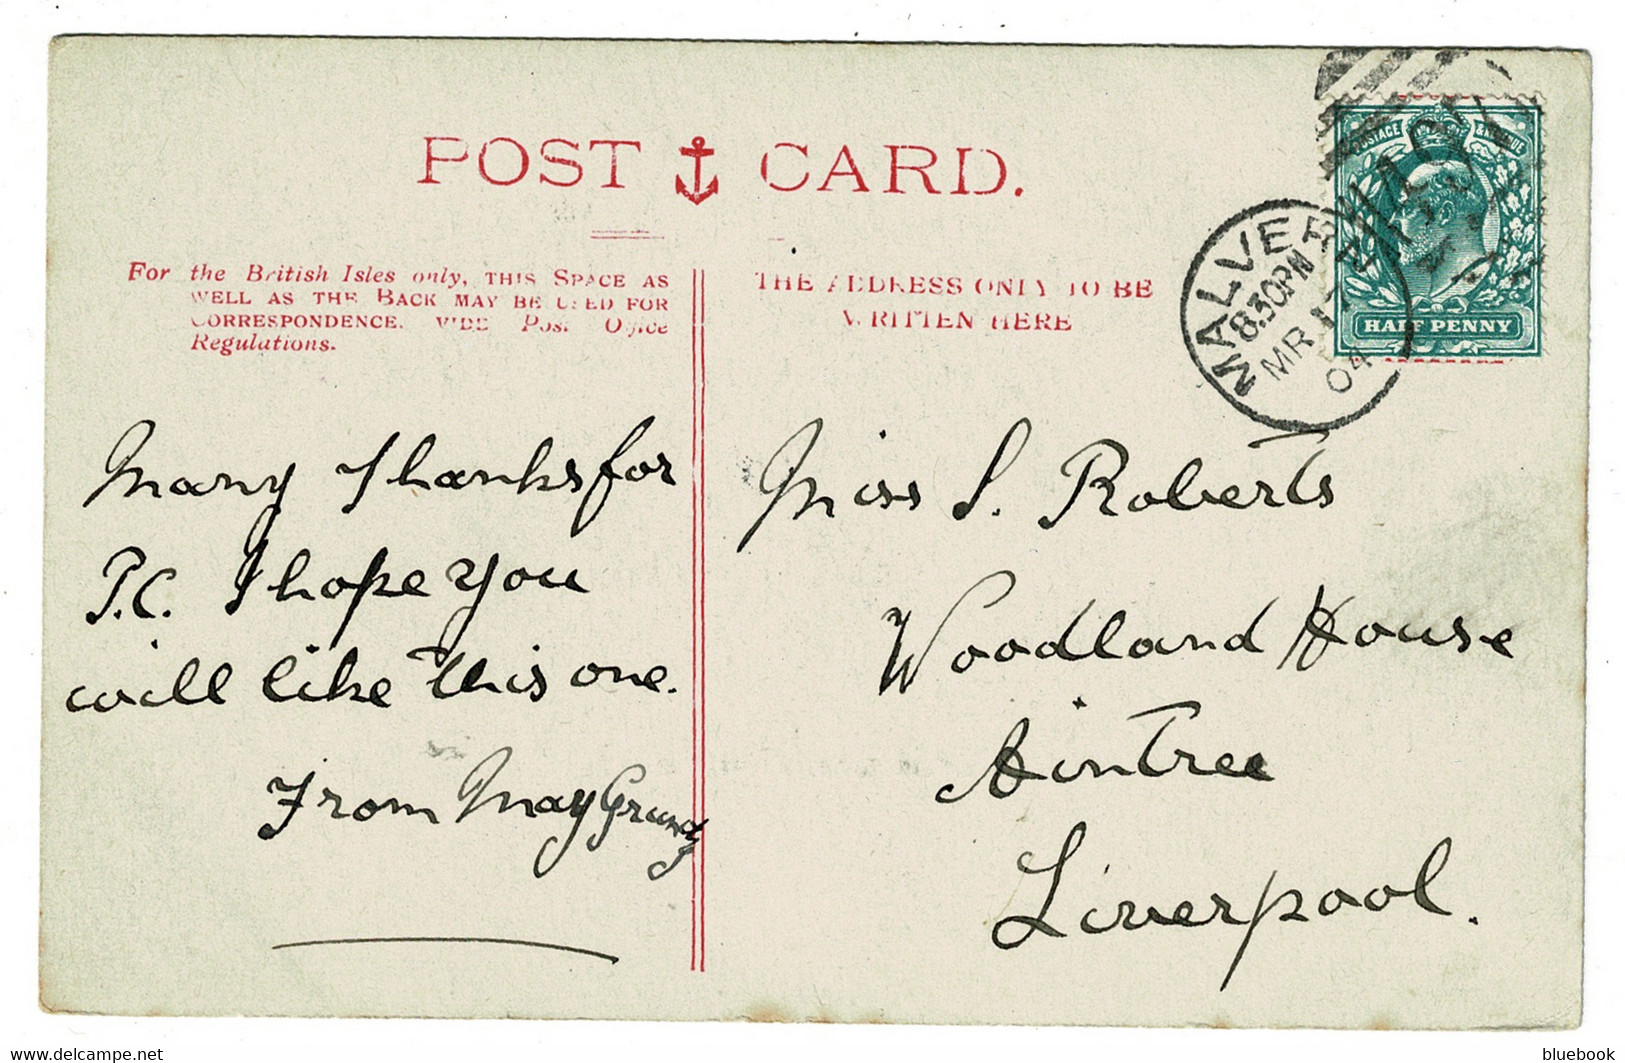 POST CARD.
For the British Isles only, THIS SPACE AS
WELL AS THE BACK MAY BE USED FOR
CORRESPONDENCE. VIDE Post Office
Regulations.
THE ADDRESS ONLY TO BE
WRITTEN HERE
MALVERN
8.30PM
MR 17
04
POSTAGE & REVENUE
HALF PENNY
Many Thanks for
P.C. I hope you
will like this one.
From May Grundy
Miss S. Roberts
Woodland House
Aintree
Liverpool.
bluebook